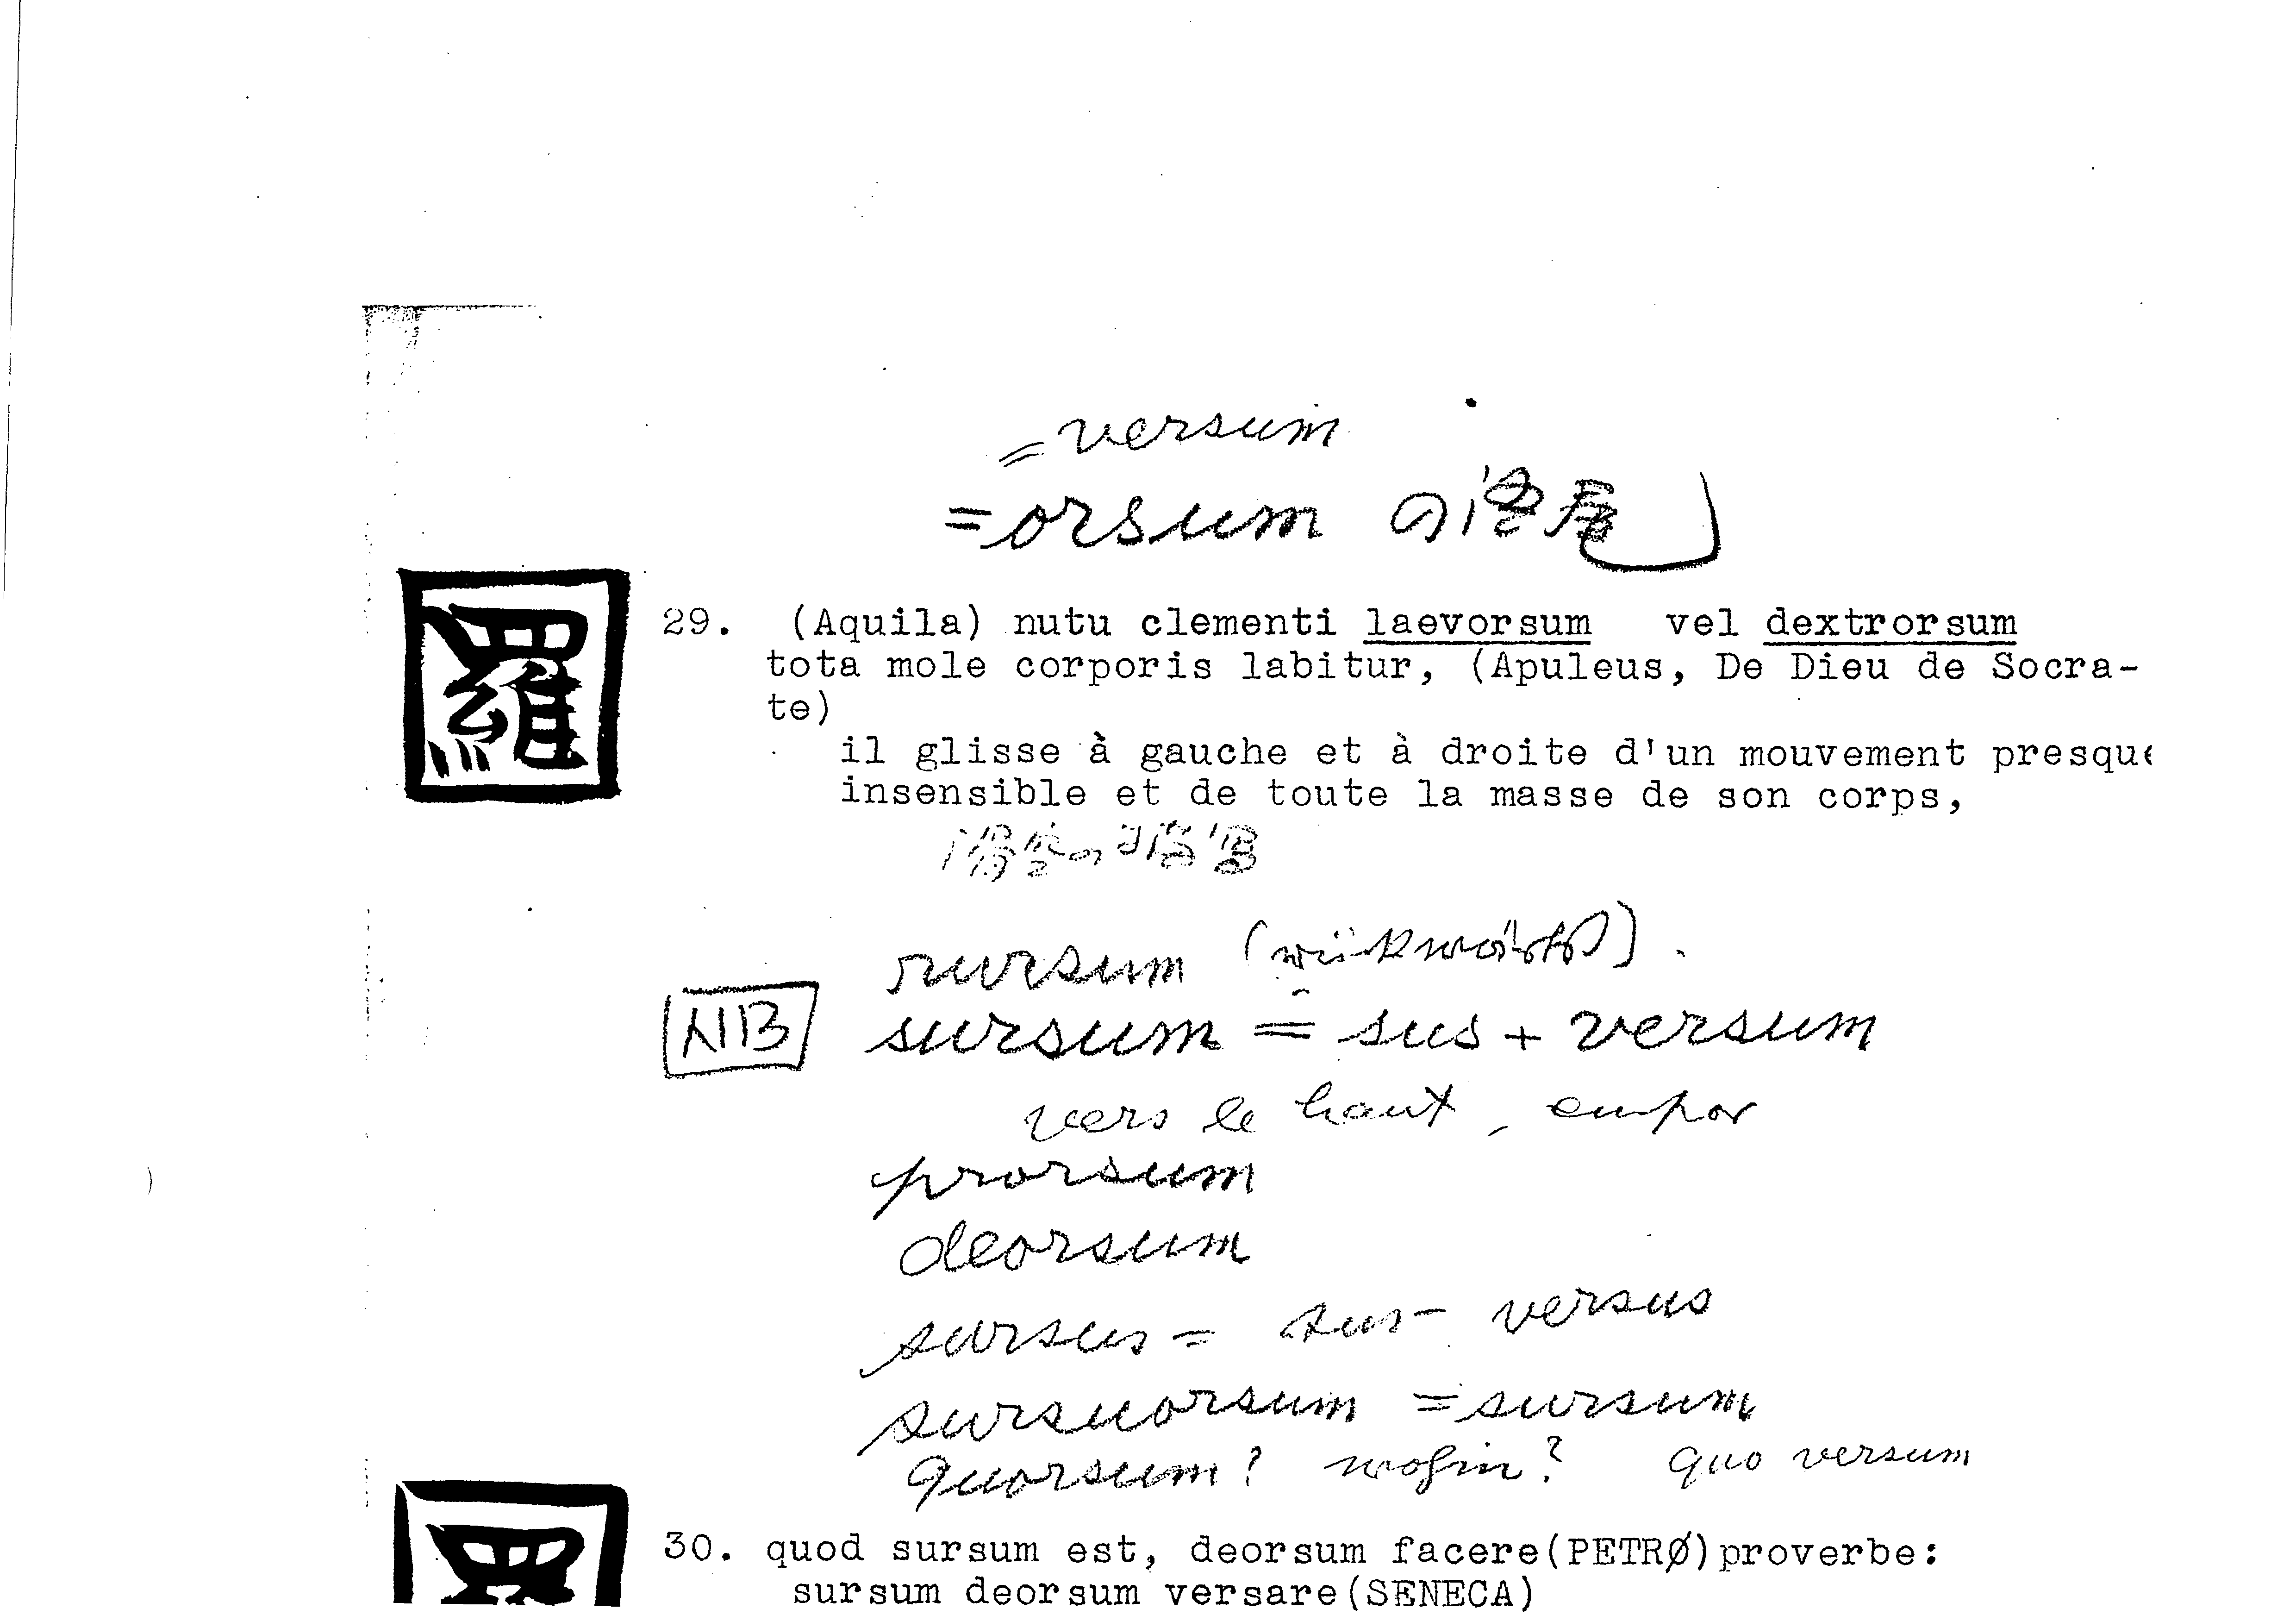 = versum
= orsum
羅
29. (Aquila) nutu clementi laevorsum vel dextrorsum
tota mole corporis labitur, (Apuleus, De Dieu de Socra-
te)
il glisse à gauche et à droite d'un mouvement presque
insensible et de toute la masse de son corps,
rursum
NB sursum = sus + versum
vers le haut, empor
prorsum
deorsum
sursus = sus- versus
sursuorsum = sursum
quorsum? wohin? quo versum
30. quod sursum est, deorsum facere(PETRØ)proverbe:
sursum deorsum versare(SENECA)